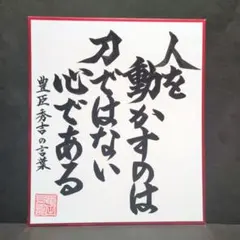 人を
動かすのは
力ではない
心である
豊臣秀吉の言葉